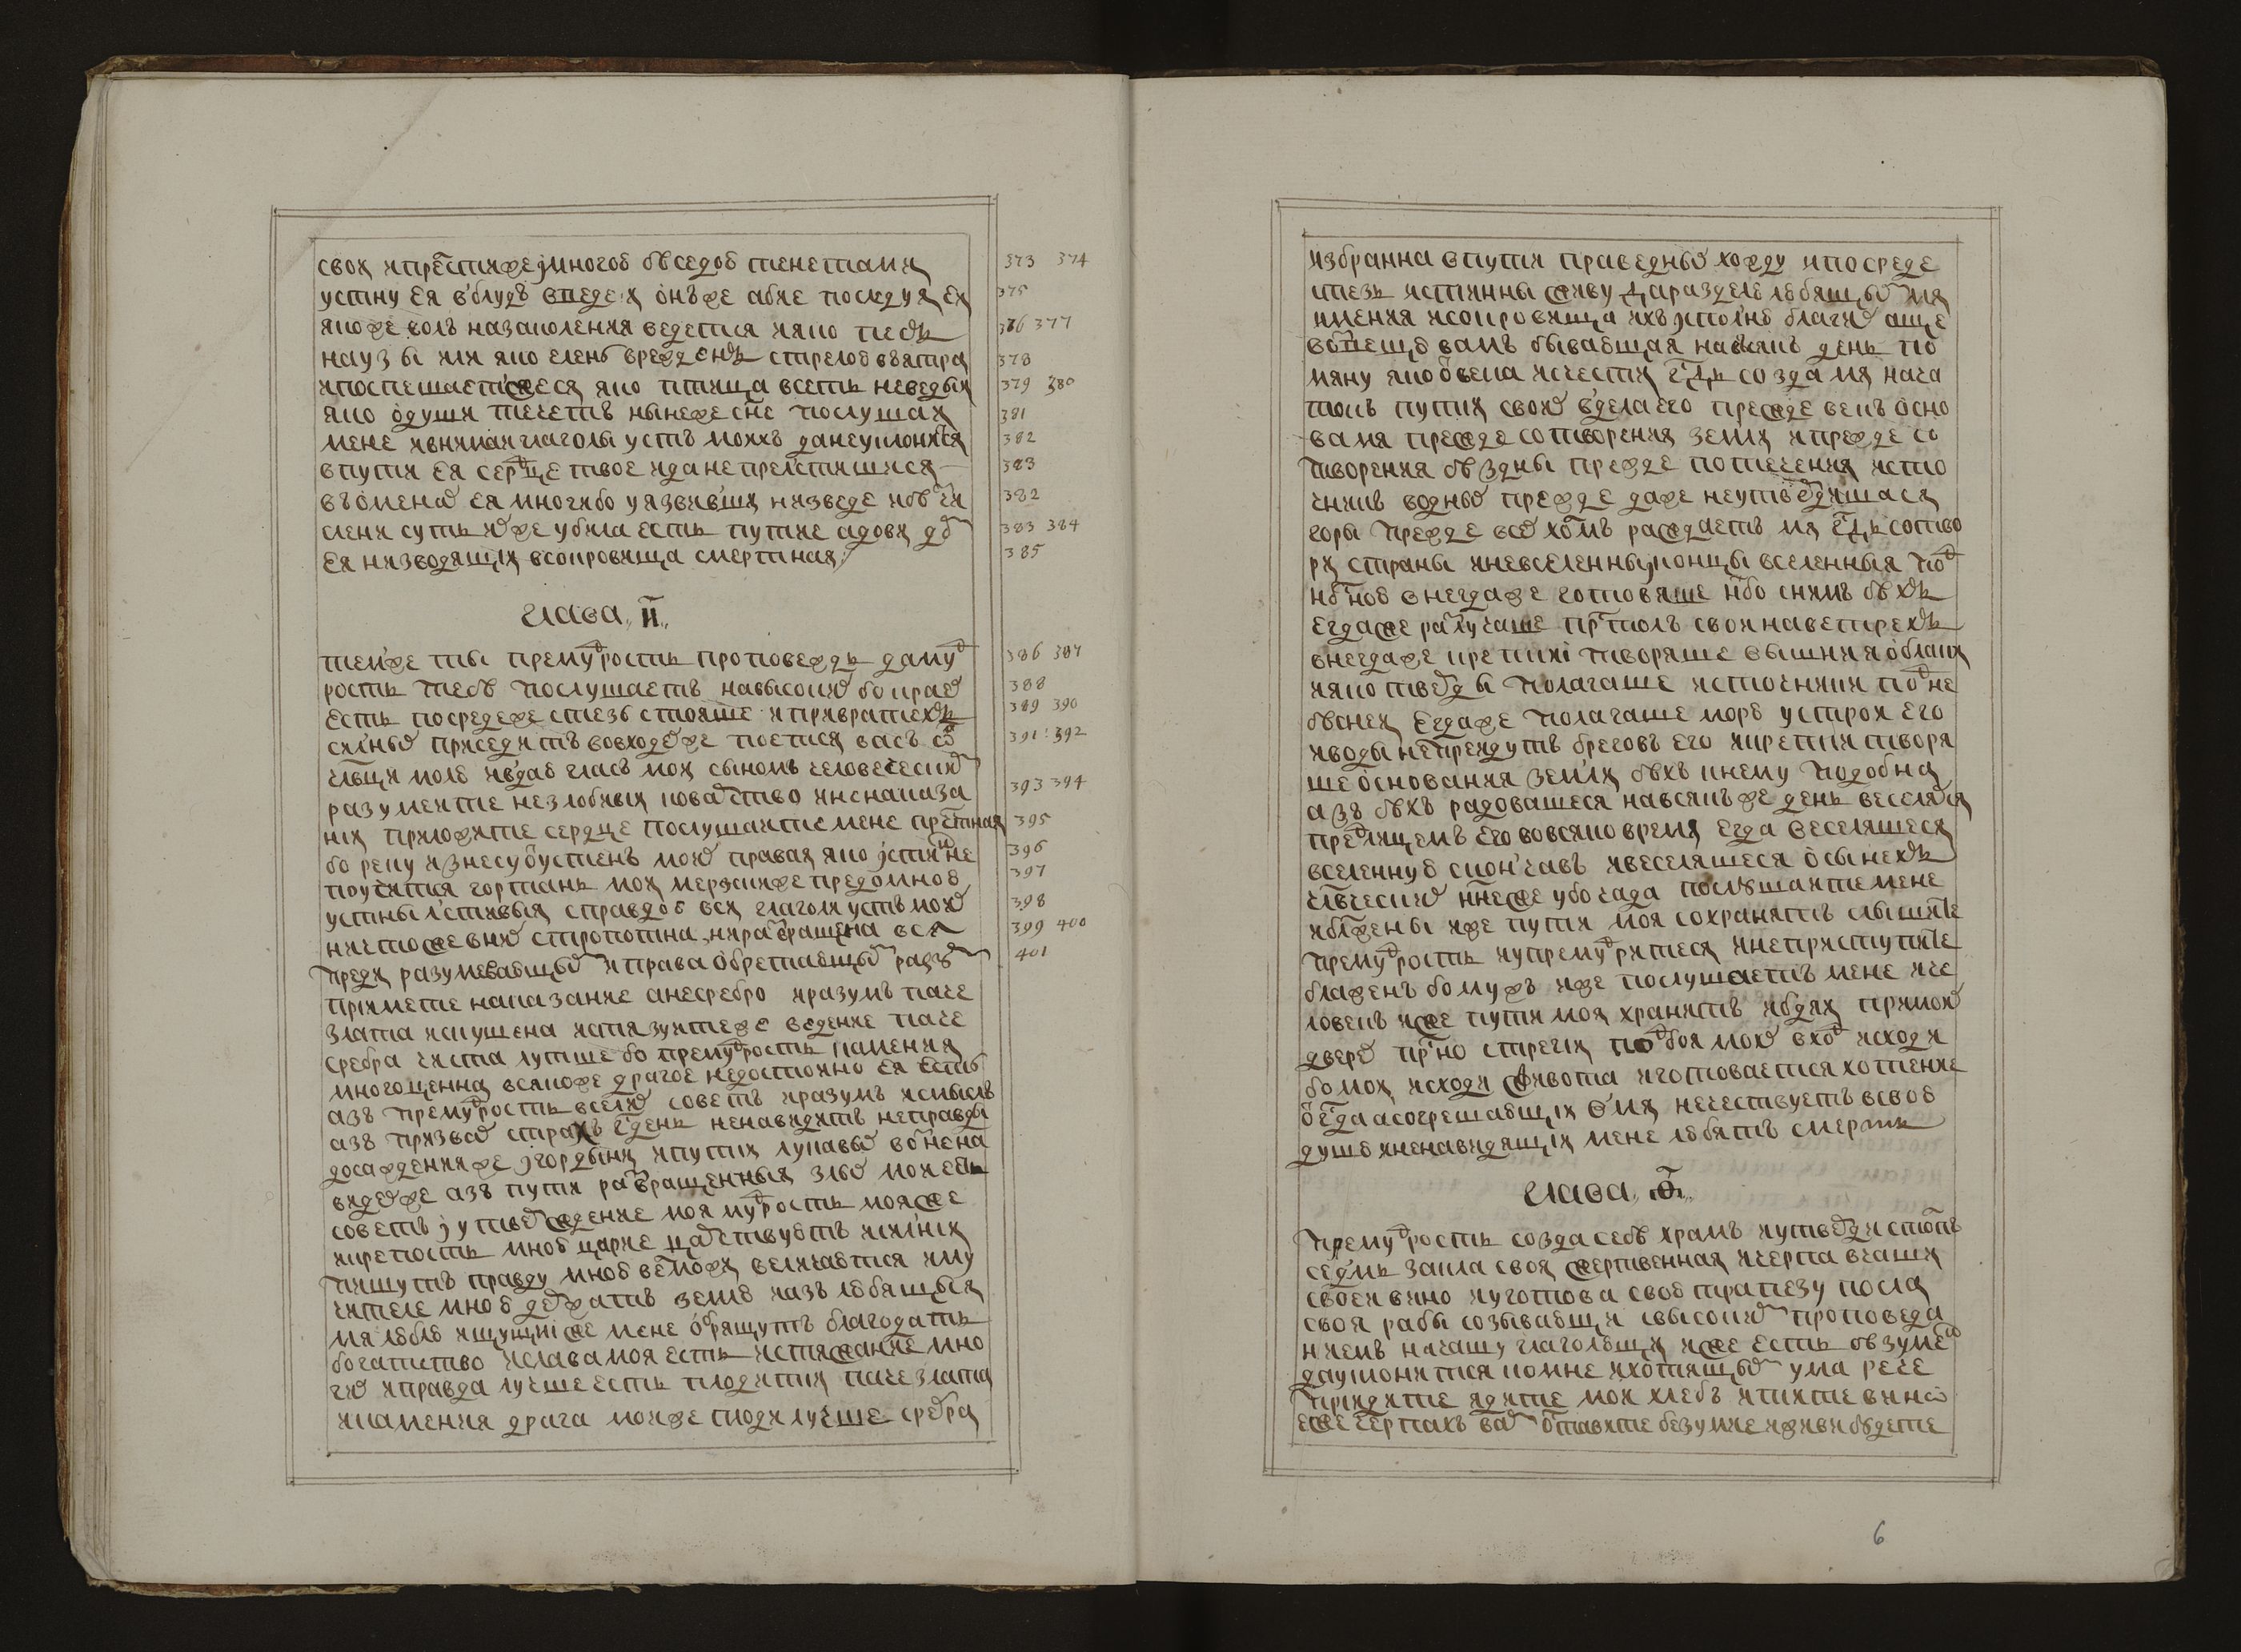 своя и прелстиже і многою бѣседою тенетами
устну ея в блудъ введе и онъже абие последуя ея
якоже волъ на заколения ведется и яко песъ
на узы или яко елень врежденъ стрелою въ ятра
и поспешается яко птица в сеть неведыи
яко о души течетъ ныне же сне послушаи
мене и внимаи глаголы устъ моихъ да не уклонится
в пути ея сердце твое и да не прелстишися
въ омена ея многи бо уязвивши низведе и бѣзчи
слени суть иже убила есть путие адови до
ея низводящия в сокровища смертная

глава и

темже ты премудрость проповеждь да муд
рость тебѣ послушаетъ на высоких бо краех
есть посреде же стезь стояше и при вратехъ
силных приседитъ во входе же поется васъ о
члвцы молю и вдаю гласъ мои сыномъ человеческим
разумеите незлобивыя коварство и ненаказа
нія приложите сердце послушаите мене претная
бо реку и изнесу о устенъ моих правая яко істинне
поучится гортань мои мерзки же предо мною
устны лстивыя с правдою вси глаголи устъ моих
ничтоже в них стропотна ни развращена вся
преди разумевающым и права обретающым разъ
приимете наказание а не сребро и разумъ паче
злата искушена истязуите же ведение паче
сребра чиста лутше бо премудрость камения
многоценна всякоже драгое недостоино ея есть
азъ премудрость вселих советъ и разумъ и смыслъ
азъ призвах страхъ гдень ненавидитъ неправды
досаждения же і гордыни и пути лукавых вознена
видех же азъ пути развращенныя злых мои есть
советъ і утвержение моя мудрость моя же
и крепость мною царие царствуютъ и силнии
пишутъ правду мною велможи величаются и му
чителе мною держатъ землю и азъ любящыя
мя люблю ищущиі же мене обрящутъ благодать
богатство и слава моя есть и стяжание мно
гих и правда лучше есть плодити паче злата
и камения драга мои же плоди лучше сребра
373 374
375
376 377
378
379 380
381
382
383
382
383 384
385
386 387
388
389 390
391: 392
393 394
395
396
397
398
399 400
401

избранна в пути праведных хожду и посреде
стезь истинны живу да разделю любящым мя
имения и сокровища ихъ исполню благих аще
возвещю вамъ бывающая на всякъ день по
мяну яко о века исчести гдь созда мя нача
токъ путии своих в дела его прежде векъ осно
ва мя прежде сотворения земли и прежде со
творения бѣздны прежде потечения исто
чникъ водных прежде даже не утвердишася
горы прежде всех холмъ раждаетъ мя гдь сотво
ри страны и невселенныі концы вселенныя под
нбною внегда же готовяше нбо с нимъ бѣхъ
егда же разлучаше прстолъ свои на ветрехъ
внегда же крепкі творяше вышния облаки
и яко тверды полагаше источники подне
бѣсней егда же полагаше морю устрои его
и воды не преидутъ бреговъ его и крепки творя
ше основания земли бѣхъ к нему подобна
азъ бѣхъ радовашеся на всякъ же день веселяся
пред лицемъ его во всяко время егда веселяшеся
вселенную скончавъ и веселяшеся о сынехъ
члвческих нне же убо чада послушаите мене
и блжены иже пути моя сохранятъ слышите
премудрость и упремудритеся и не приступите
блаженъ бо мужъ иже послушаетъ мене и че
ловекъ иже пути моя хранитъ и бдяи при моих
дверех присно стрегіи подбоя моих вход исходи
бо мои исходи живота и готовается хотение
о гда а согрешающіи в мя нечествуетъ в свою
душю и ненавидящіи мене любятъ смерть

глава ѳ

премудрость созда себѣ храмъ и утверди столпъ
седмь закла своя жертвенная и черпа в чаши
своеи вино и уготова свою трапезу посла
своя рабы созывающи с высоким проповеда
нием на чашу глаголющи иже есть бѣзумен
да уклонится ко мне и хотящым ума рече
приидите ядите мои хлебъ и пиите вино
еже черпахъ вам оставите безумие и живи будете
6